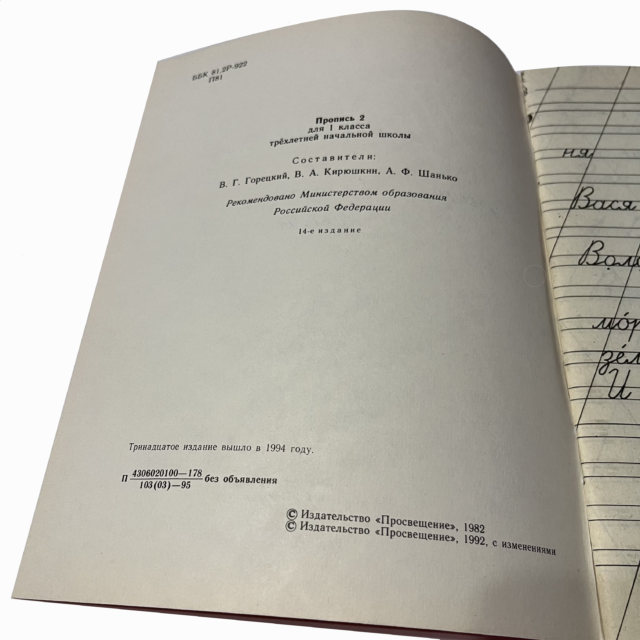 ББК 81.2Р-922
П81
Пропись 2
для 1 класса
трёхлетней начальной школы
Составители:
В. Г. Горецкий, В. А. Кирюшкин, А. Ф. Шанько
Рекомендовано Министерством образования
Российской Федерации
14-е издание
Тринадцатое издание вышло в 1994 году.
П 4306020100—178 без объявления
103(03)—95
© Издательство «Просвещение», 1982
© Издательство «Просвещение», 1992, с изменениями
ня
Вася
И